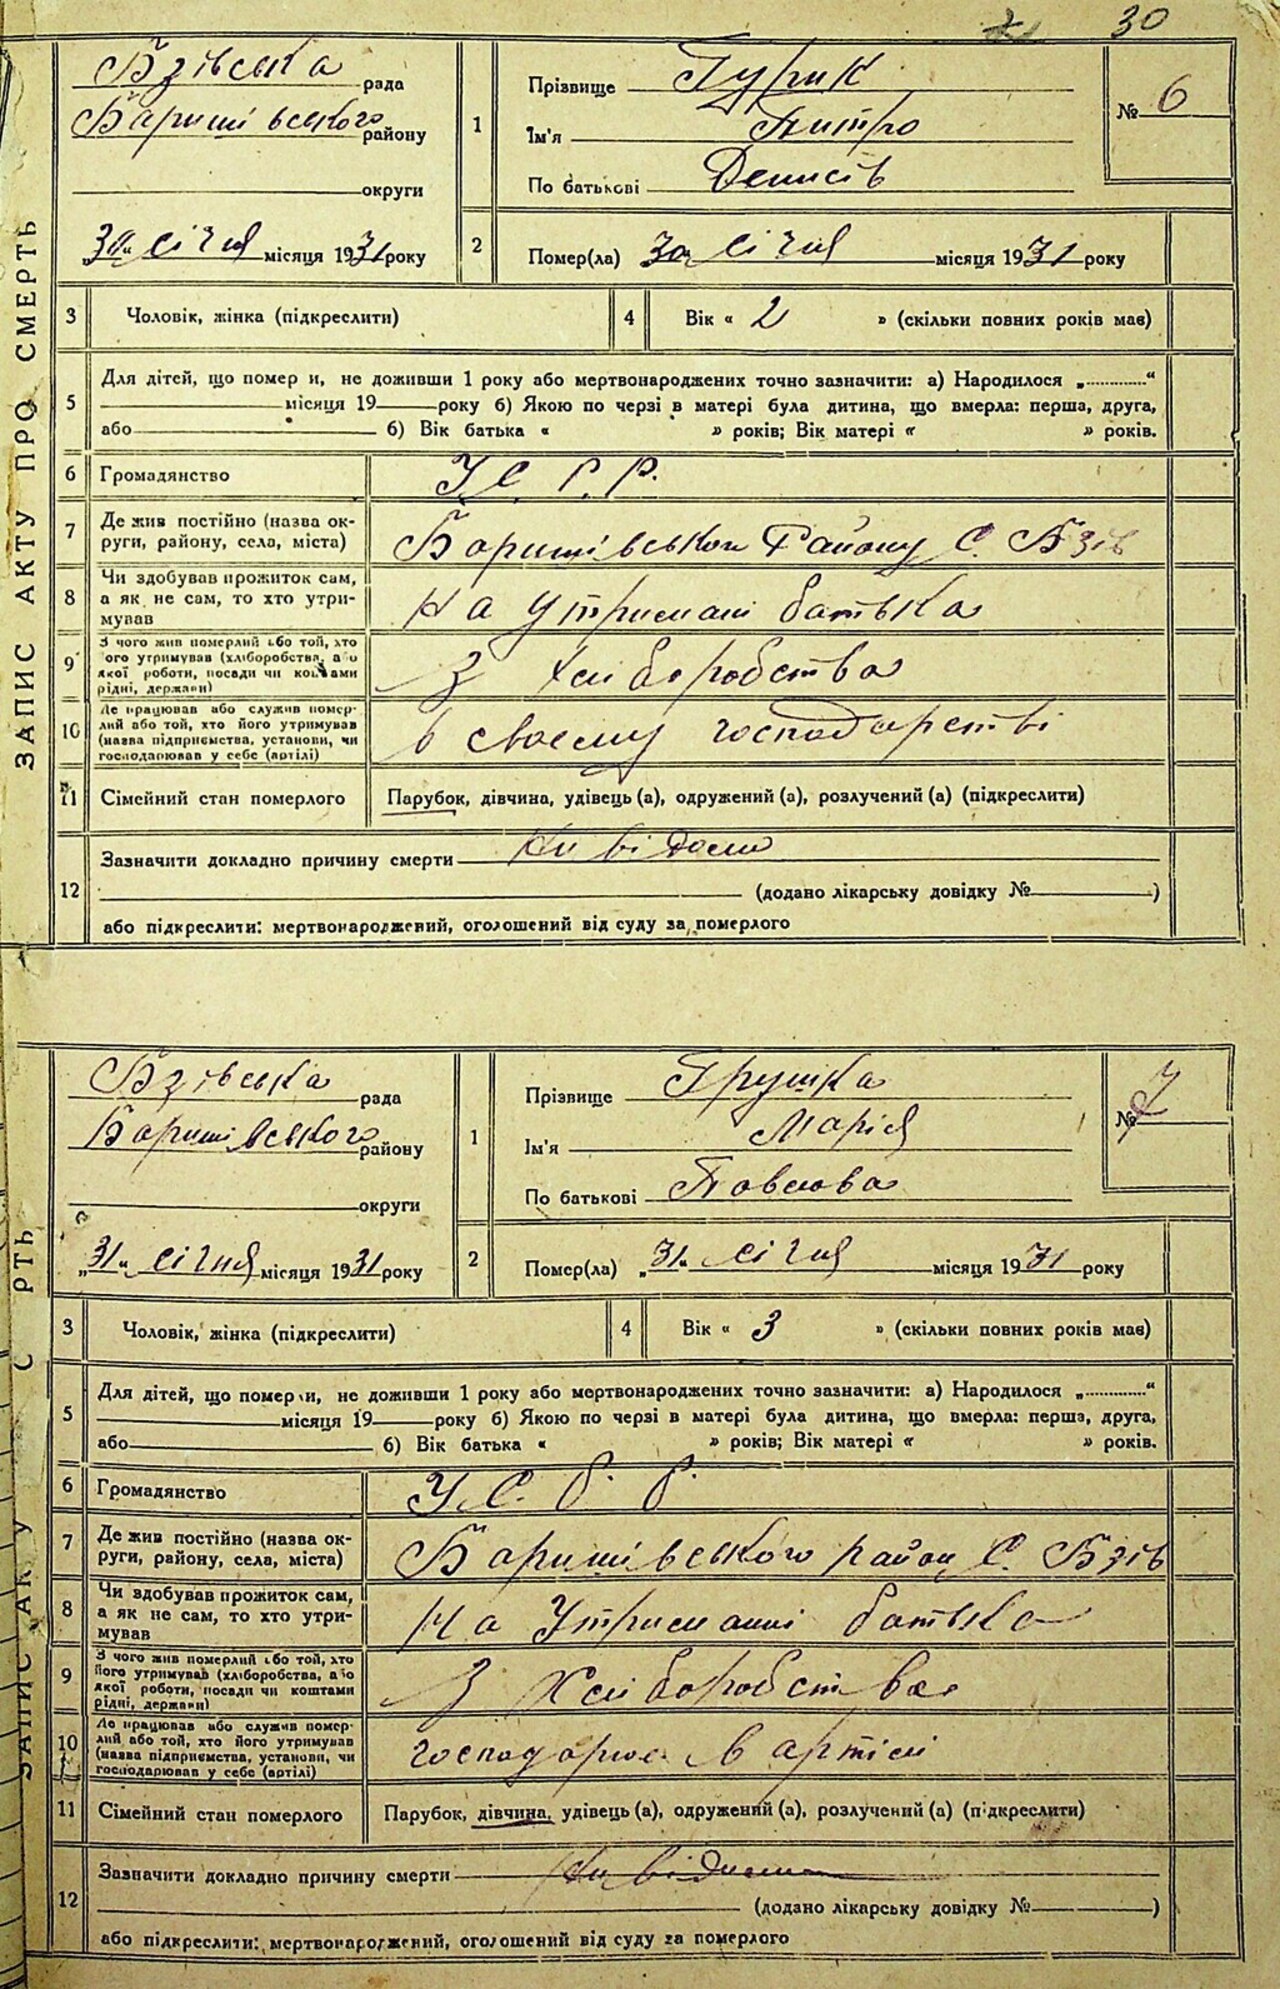 30
ЗАПИС АКТУ ПРО СМЕРТЬ
Бзівська рада
Баришівського району
округи
"30" січня місяця 1931 року
1
Прізвище Гурик
Ім'я Питро
По батькові Денисів
№ 6
2
Помер(ла) 30 січня місяця 1931 року
3
Чоловік, жінка (підкреслити)
4
Вік « 2 » (скільки повних років має)
5
Для дітей, що помер и, не доживши 1 року або мертвонароджених точно зазначити: а) Народилося „..............“
місяця 19 року б) Якою по черзі в матері була дитина, що вмерла: перша, друга,
або б) Вік батька « » років; Вік матері « » років.
6
Громадянство У.С.Р.Р.
7
Де жив постійно (назва ок-
руги, району, села, міста)
Баришівськои Району С. Бзів
8
Чи здобував прожиток сам,
а як не сам, то хто утри-
мував
на утримані батька
9
З чого жив померлий або той, хто
ого утримував (хліборобства, або
якої роботи, посади чи коштами
рідні, держави)
З хліборобства
10
Де працював або служив помер-
лий або той, хто його утримував
(назва підприємства, установи, чи
господарював у себе (артілі)
в своєму господарстві
11
Сімейний стан померлого
Парубок, дівчина, удівець (а), одружений (а), розлучений (а) (підкреслити)
12
Зазначити докладно причину смерти Ни відомо
(додано лікарську довідку № )
або підкреслити: мертвонароджений, оголошений від суду за померлого
ЗАПИС АКУ С РТЬ
Бзівська рада
Баришівського району
округи
„31“ січня місяця 1931 року
1
Прізвище Грушка
Ім'я Марія
По батькові Павлова
№ 7
2
Помер(ла) „31“ січня місяця 1931 року
3
Чоловік, жінка (підкреслити)
4
Вік « 3 » (скільки повних років має)
5
Для дітей, що помер и, не доживши 1 року або мертвонароджених точно зазначити: а) Народилося „..............“
місяця 19 року б) Якою по черзі в матері була дитина, що вмерла: перша, друга,
або б) Вік батька « » років; Вік матері « » років.
6
Громадянство У.С.Р.Р.
7
Де жив постійно (назва ок-
руги, району, села, міста)
Баришівського район С. Бзів
8
Чи здобував прожиток сам,
а як не сам, то хто утри-
мував
На Утриманні батька
9
З чого жив померлий або той, хто
його утримував (хліборобства, або
якої роботи, посади чи коштами
рідні, держави)
З Хліборобства
10
Де працював або служив помер-
лий або той, хто його утримував
(назва підприємства, установи, чи
господарював у себе (артілі)
господарює в артілі
11
Сімейний стан померлого
Парубок, дівчина, удівець (а), одружений (а), розлучений (а) (підкреслити)
12
Зазначити докладно причину смерти Ни відома
(додано лікарську довідку № )
або підкреслити: мертвонароджений, оголошений від суду за померлого